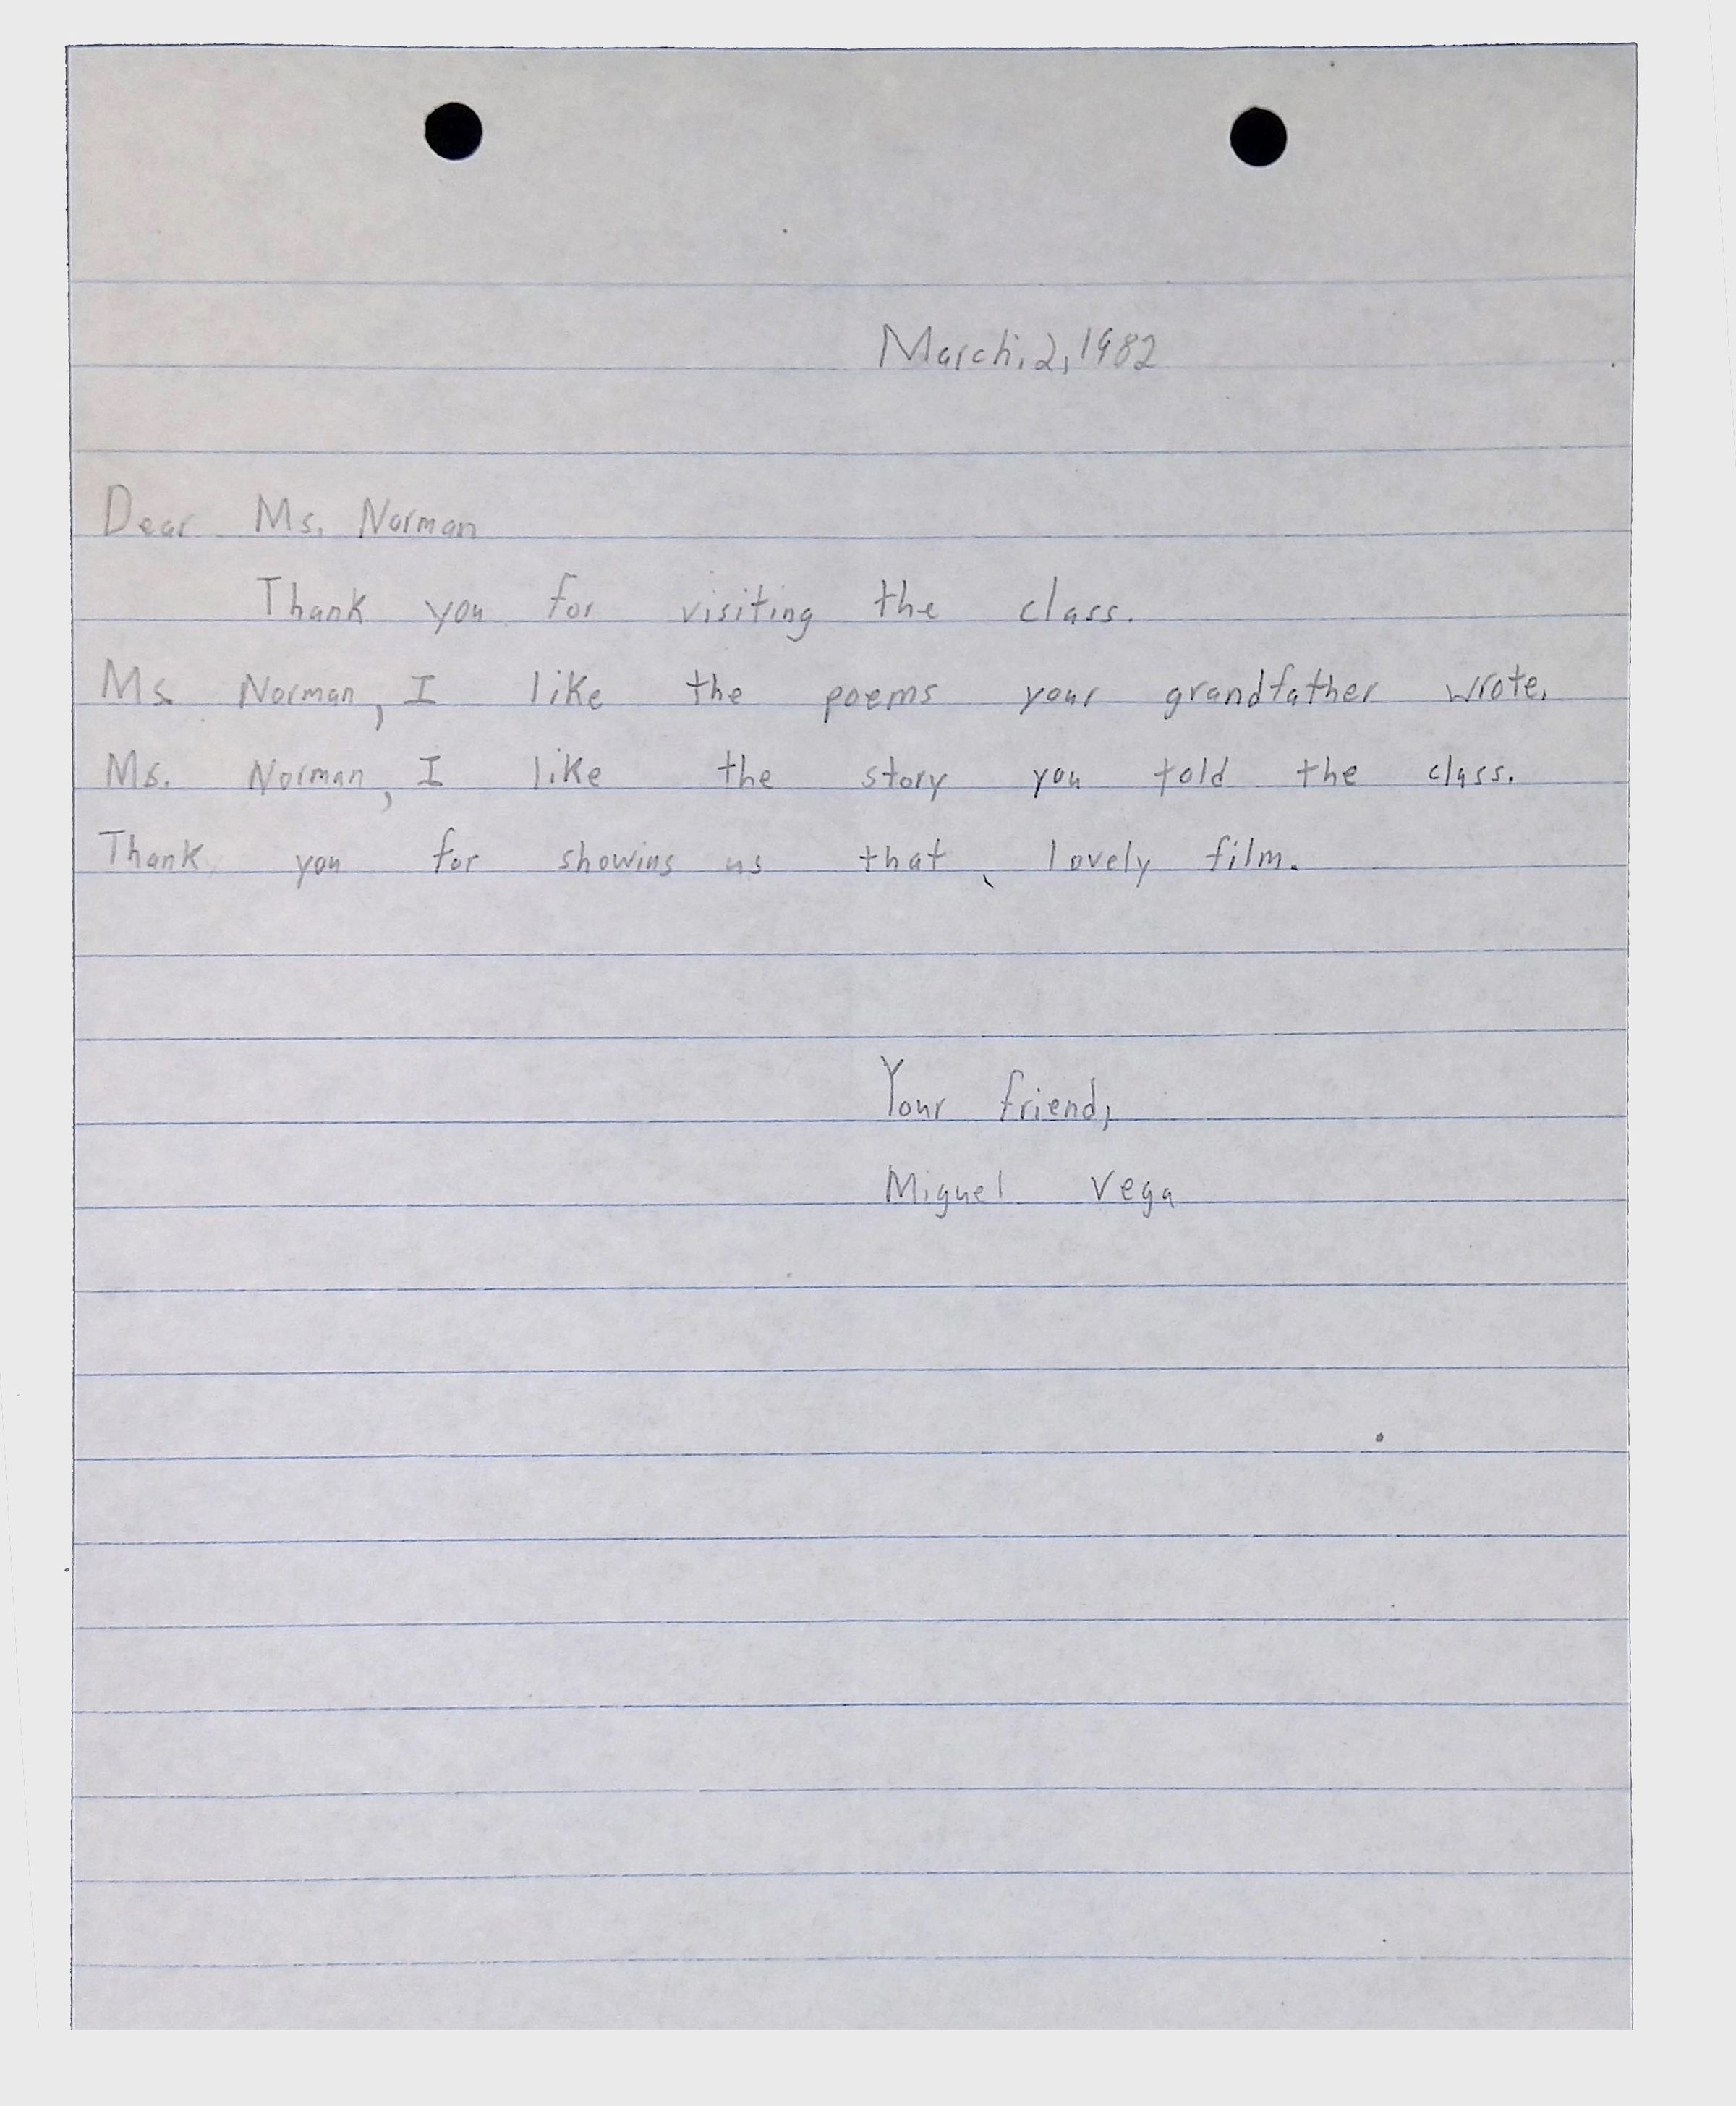 March. 2, 1982
Dear Ms. Norman
Thank you for visiting the class.
Ms. Norman, I like the poems your grandfather wrote.
Ms. Norman, I like the story you told the class.
Thank you for showing us that lovely film.
Your friend,
Miguel Vega